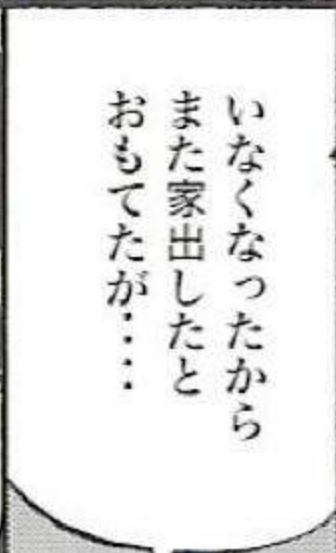 いなくなったから
また家出したと
おもてたが・・・・